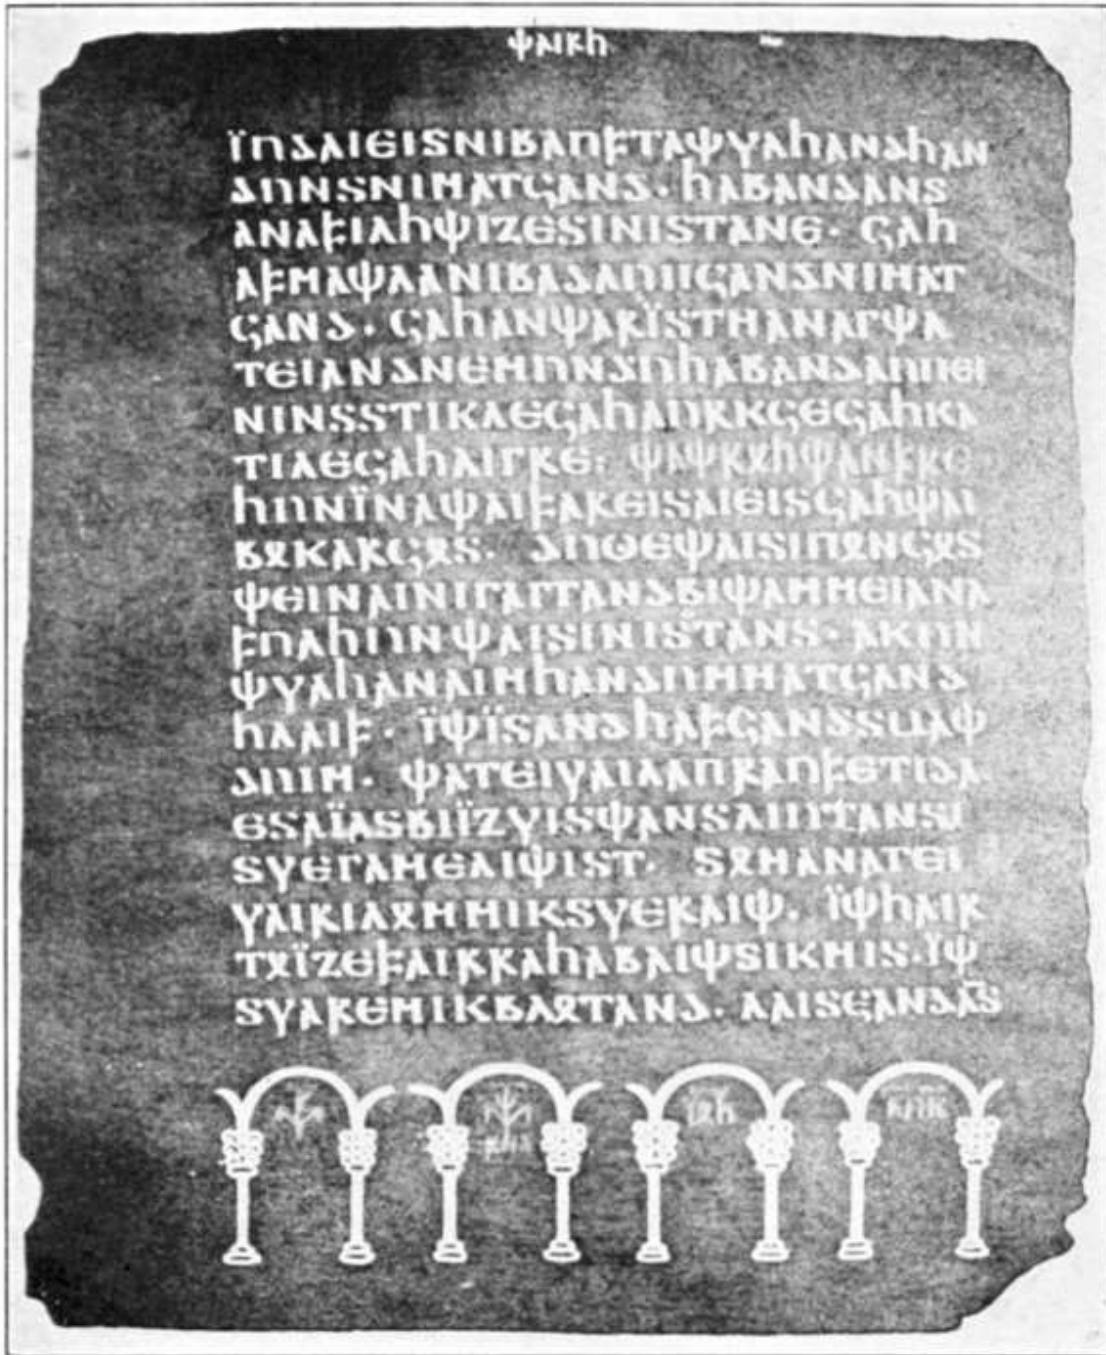 𐌸𐌰𐌹𐍂𐌷
𐌹̈𐌿𐌳𐌰𐌹𐌴𐌹𐍃𐌽𐌹𐌱𐌰𐌿𐍆𐍄𐌰𐌸𐍅𐌰𐌷𐌰𐌽𐌳𐌷𐌰𐌽
𐌳𐌿𐌽𐍃𐌽𐌹𐌼𐌰𐍄𐌾𐌰𐌽𐌳· 𐌷𐌰𐌱𐌰𐌽𐌳𐌰𐌽𐍃
𐌰𐌽𐌰𐍆𐌹𐌻𐌷𐌸𐌹𐌶𐌴𐍃𐌹𐌽𐌹𐍃𐍄𐌰𐌽𐌴· 𐌾𐌰𐌷
𐌰𐍆𐌼𐌰𐌸𐌻𐌰𐌽𐌹𐌱𐌰𐌳𐌰𐌿𐍀𐌾𐌰𐌽𐌳𐌽𐌹𐌼𐌰𐍄
𐌾𐌰𐌽𐌳· 𐌾𐌰𐌷𐌰𐌽𐌸𐌰𐍂𐌹̈𐍃𐍄𐌼𐌰𐌽𐌰𐌲𐌸𐌰
𐍄𐌴𐌹𐌰𐌽𐌳𐌽𐌴𐌼𐌿𐌽𐌳𐌿𐌷𐌰𐌱𐌰𐌽𐌳𐌰𐌿𐍀𐌴𐌹
𐌽𐌹𐌽𐍃𐍃𐍄𐌹𐌺𐌻𐌴𐌾𐌰𐌷𐌰𐌿𐍂𐌺𐌾𐌴𐌾𐌰𐌷𐌺𐌰
𐍄𐌹𐌻𐌴𐌾𐌰𐌷𐌻𐌹𐌲𐍂𐌴· 𐌸𐌰𐌸𐍂𐍉𐌷𐌸𐌰𐌽𐍆𐍂𐌴
𐌷𐌿𐌽𐌹̈𐌽𐌰𐌸𐌰𐌹𐍆𐌰𐍂𐌴𐌹𐍃𐌰𐌹𐌴𐌹𐍃𐌾𐌰𐌷𐌸𐌰𐌹
𐌱𐍉𐌺𐌰𐍂𐌾𐍉𐍃· 𐌳𐌿𐍈𐌴𐌸𐌰𐌹𐍃𐌹𐍀𐍉𐌽𐌾𐍉𐍃
𐌸𐌴𐌹𐌽𐌰𐌹𐌽𐌹𐌲𐌰𐌲𐌲𐌰𐌽𐌳𐌱𐌹𐌸𐌰𐌼𐌼𐌴𐌹𐌰𐌽𐌰
𐍆𐌿𐌻𐌷𐌿𐌽𐌸𐌰𐌹𐍃𐌹𐌽𐌹𐍃𐍄𐌰𐌽𐍃· 𐌰𐌺𐌿𐌽
𐌸𐍅𐌰𐌷𐌰𐌽𐌰𐌹𐌼𐌷𐌰𐌽𐌳𐌿𐌼𐌼𐌰𐍄𐌾𐌰𐌽𐌳
𐌷𐌻𐌰𐌹𐍆· 𐌹̈𐌸𐌹̈𐍃𐌰𐌽𐌳𐌷𐌰𐍆𐌾𐌰𐌽𐌳𐍃𐌵𐌰𐌸
𐌳𐌿𐌹𐌼· 𐌸𐌰𐍄𐌴𐌹𐍅𐌰𐌹𐌻𐌰𐍀𐍂𐌰𐌿𐍆𐌴𐍄𐌹𐌳𐌰
𐌴𐍃𐌰𐌹̈𐌰𐍃𐌱𐌹𐌹̈𐌶𐍅𐌹𐍃𐌸𐌰𐌽𐍃𐌻𐌹𐌿𐍄𐌰𐌽𐍃
𐍃𐍅𐌴𐌲𐌰𐌼𐌴𐌻𐌹𐌸𐌹𐍃𐍄· 𐍃𐍉𐌼𐌰𐌽𐌰𐌲𐌴𐌹
𐍅𐌰𐌹𐍂𐌹𐌻𐍉𐌼𐌼𐌹𐌺𐍃𐍅𐌴𐍂𐌰𐌹𐌸· 𐌹̈𐌸𐌷𐌰𐌹𐍂
𐍄𐍉𐌹̈𐌶𐌴𐍆𐌰𐌹𐍂𐍂𐌰𐌷𐌰𐌱𐌰𐌹𐌸𐍃𐌹𐌺𐌼𐌹𐍃· 𐌹̈𐌸
𐍃𐍅𐌰𐍂𐌴𐌼𐌹𐌺𐌱𐌻𐍉𐍄𐌰𐌽𐌳· 𐌻𐌰𐌹𐍃𐌾𐌰𐌽𐌳𐌰𐌽𐍃